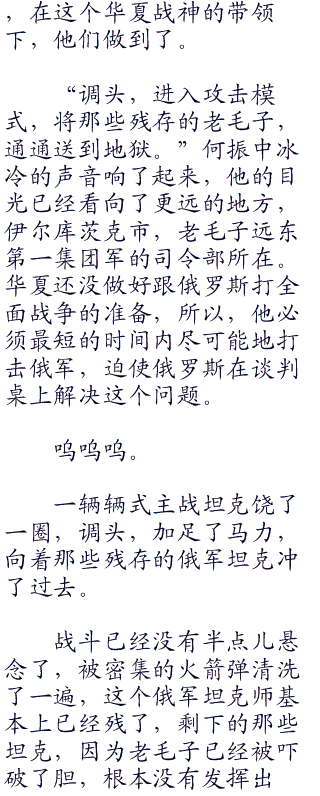 ，在这个华夏战神的带领
下，他们做到了。
“调头，进入攻击模
式，将那些残存的老毛子，
通通送到地狱。”何振中冰
冷的声音响了起来，他的目
光已经看向了更远的地方，
伊尔库茨克市，老毛子远东
第一集团军的司令部所在。
华夏还没做好跟俄罗斯打全
面战争的准备，所以，他必
须最短的时间内尽可能地打
击俄军，迫使俄罗斯在谈判
桌上解决这个问题。
呜呜呜。
一辆辆式主战坦克饶了
一圈，调头，加足了马力，
向着那些残存的俄军坦克冲
了过去。
战斗已经没有半点儿悬
念了，被密集的火箭弹清洗
了一遍，这个俄军坦克师基
本上已经残了，剩下的那些
坦克，因为老毛子已经被吓
破了胆，根本没有发挥出